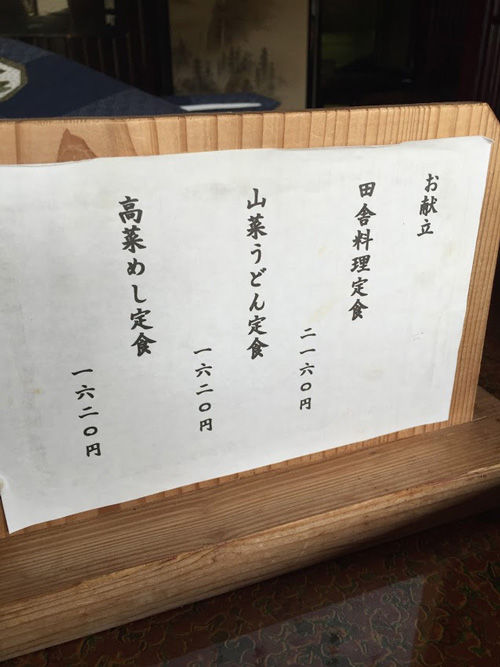 お献立
田舎料理定食
二一六〇円
山菜うどん定食
一六二〇円
高菜めし定食
一六二〇円